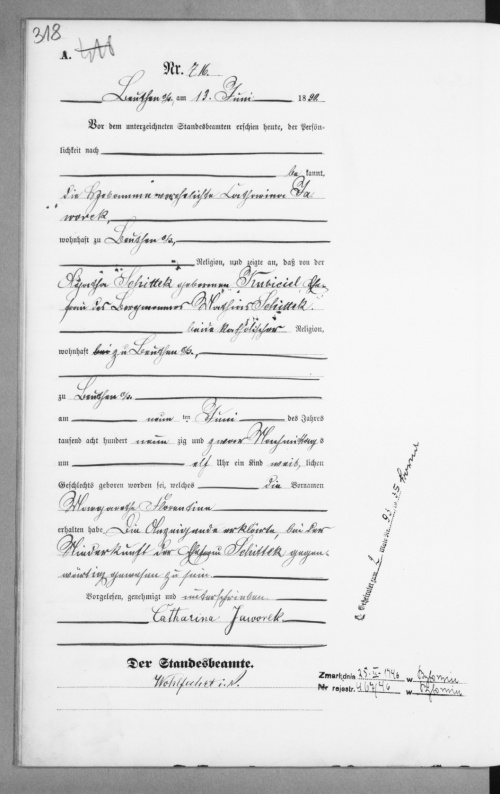 318
A.
Nr. 716.
Beuthen O/S, am 13. Juni 1890
Vor dem unterzeichneten Standesbeamten erschien heute, der Persön-
lichkeit nach
be kannt,
die Hebamme verehelichte Catharina Ja-
worek,
wohnhaft zu Beuthen O/S,
Religion, und zeigte an, daß von der
Agatha Schittek geborenen Kubiciel Ehe-
frau des Bergmannes Mathias Schittek,
beide katholischer Religion,
wohnhaft bei zu Beuthen O/S,
zu Beuthen O/S
am neun ten Juni des Jahres
tausend acht hundert neun zig und zwar Nachmittags
um elf Uhr ein Kind weib lichen
Geschlechts geboren worden sei, welches die Vornamen
Margarethe Florentine
erhalten habe. Die Anzeigende erklärte, bei der
Niederkunft der Ehefrau Schittek gegen-
wärtig gewesen zu sein.
Vorgelesen, genehmigt und unterschrieben
Catharina Jaworek
Der Standesbeamte.
Zmarł dnia 25. 1946 w Bytomiu
Nr rejestr. 467/46 w Bytomiu